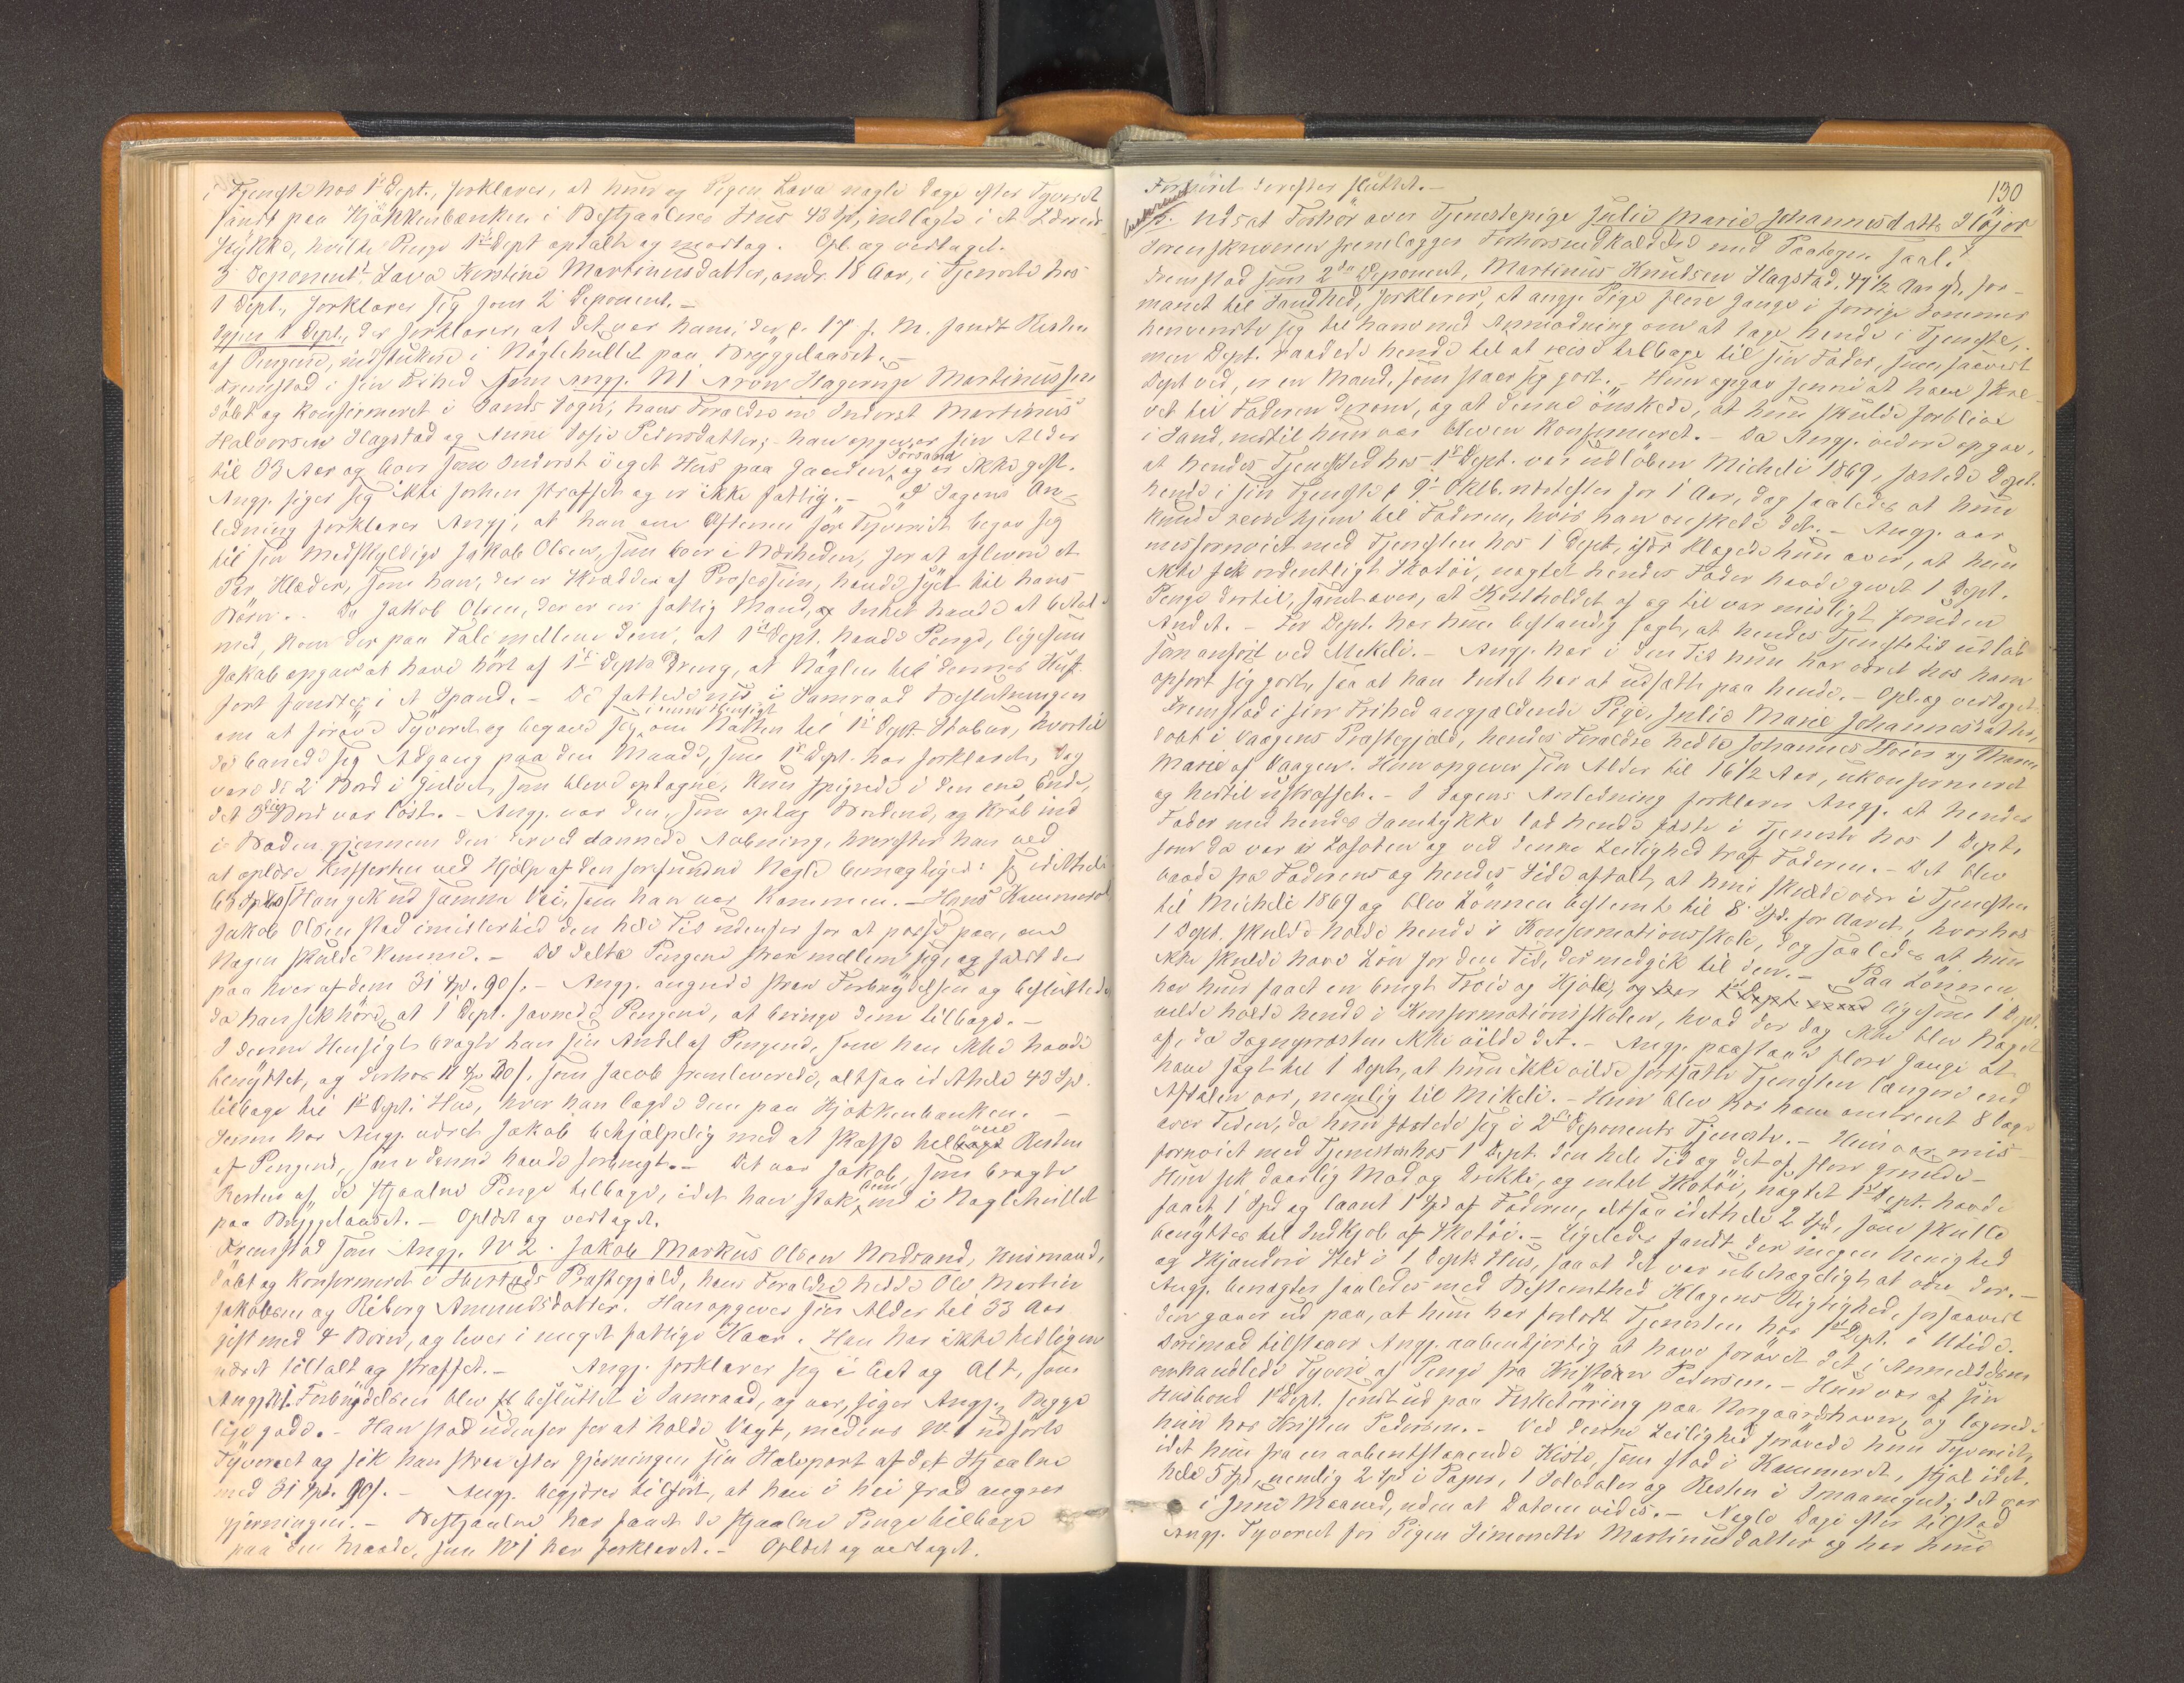 i Tjeneste hos 1ste Dept., forklarer, at hun og Pigen Lava nogle Dage efter Tyveriet
fandt paa Kjøkkenbænken i Bestjaalnes Hus 43 Spd, indlagte i et Læreds
stykke, hvilke Penge 1ste Dept optalte og modtog. Opl. og vedtaget.
3 Deponent, Lava Kirstine Martinusdatter, andr. 18 Aar, i Tjeneste hos
1 Dept., forklarer sig som 2 Deponent. –
Igjen 1 Dept., der forklarer, at det var ham, der d. 17 f. M. fandt Resten
af Pengene, indstukne i Nøglehullet paa Bryggelaaset. –
Fremstod i sin Frihed som Angj. N 1 Aron Hagerup Martinussen
døbt og konfirmeret i Sands Sogn, hans Forældre ere Inderst Martinus
Halvorsen Hagstad og Anne Sofie Pedersdatter; han opgiver sin Alder
til 33 Aar og boer som Inderst i eget Hus paa Gaarden Forsand, og er ikke gift.
Angj. siger sig ikke forhen straffet og er ikke fattig. – I Sagens An-
ledning forklarer Angj., at han om Aftenen før Tyveriet begav sig
til sin Medskyldige Jakob Olsen, som boer i Nærheden, for at aflevere et
Par Klæder, som han, der er Skrædder af Profession, havde syet til hans
Børn. Da Jakob Olsen, der er en fattig Mand, Intet havde at betale
med, kom der paa Tale mellem dem, at 1ste Dept. havde Penge, ligesom
Jakob opgav at have hørt af 1ste Depts Dreng, at Nøglen til dennes Kuf-
fert fandtes i et Spand. – De fattede nu i Samraad Beslutningen
om at forøve Tyveriet og begave sig i nævnte Hensigt om Natten til 1ste Dept. Stabur, hvortil
de banede sig Adgang paa den Maade, som 1ste Dept. har forklaret, dog
vare de 2 Bord i Gulvet, som bleve optagne, kun spigrede i den ene Ende,
det 3die Bord var løst. – Angj. var den, som optog Bordene, og krøb ind
i Boden gjennem den derved dannede Aabning, hvorefter han ved
at oplukke Kufferten ved Hjælp af den forefundne Nøgle bemægtigede sig idethele
63 Spd 60 s. Han gik ud samme Vei, som han var kommen. – Hans Kammerat
Jakob Olsen stod imidlertid den hele Tid udenfor for at passe paa, om
Nogen skulde komme. – De delte Pengene strax mellem sig, og faldt der
paa hver af dem 31 Spd. 90 s. – Angj. angrede strax Forbrydelsen og besluttede
da han fik høre, at 1 Dept. savnede Pengene, at bringe dem tilbage. –
I denne Hensigt bragte han sin Andel af Pengene, som han ikke havde
benyttet, og derhos 11 Spd 30 s. som Jacob fremleverede, altsaa idethele 43 Spd.
tilbage til 1ste Depts Hus, hvor han lagde dem paa Kjøkkenbænken. –
Senere har Angj. været Jakob behjælpelig med at skaffe tilveie Resten
af Pengene, som denne havde forbrugt. – Det var Jakob, som bragte
Resten af de stjaalne Penge tilbage, idet han stak dem ind i Nøglehullet
paa Bryggelaaset. – Oplæst og vedtaget.
Fremstod som Angj. N 2. Jakob Markus Olsen Nordsand, Husmand,
døbt og konfirmeret i Præstegjeld, hans Forældre hedde Ole Martin
Jakobsen og Riborg Amundsdatter. Han opgiver sin Alder til 33 Aar
gift med 4 Børn, og lever i meget fattige Kaar. Han har ikke tidligere
været tiltalt og straffet. – Angj. forklarer sig i Eet og Alt, som
Angj N1. Forbrydelsen blev besluttet i Samraad, og var, siger Angj., Begge
lige gode. – Han stod udenfor for at holde Vagt, medens N. 1 udførte
Tyveriet og fik han strax efter Gjerningen sin Halvpart af det Stjaalne
med 31 Spd. 90 s. – Angj. begjærer tilført, at han i høi Grad angrer
Gjerningen. – Bestjaalne har faaet de stjaalne Penge tilbage
paa den Maade, som N 1 har forklaret. – Oplæst og vedtaget.
130
Forhøret derefter sluttet. –
Udsat Forhør over Tjenestepige Julie Marie Johannesdatter Höjor
Sorenskriveren fremlægger Forhørsindkaldelse med Paategn. saal.
Fremstod som 2den Deponent, Martinus Knutsen Hagstad, 47 1/2 Aar gl., for-
manet til Sandhed, forklarer, at angj. Pige flere Gange i forrige Sommer
henvendte sig til ham med Anmodning om at tage hende i Tjeneste,
men Dept. raadede hende til at reise tilbage til sin Fader, som, saavidt
Dept ved, er en Mand, som staaer sig godt. – Hun opgav senere at have skre-
vet til Faderen derom, og at denne ønskede, at hun skulde forblive
i Sand, indtil hun var bleven konfirmeret. – Da Angj. videre opgav,
at hendes Tjenested hos 1ste Dept. var udløben Micheli 1869, fæstede Dept.
hende i sin Tjeneste d. 9de Oktb. næstefter for 1 Aar, dog saaledes at hun
kunde reise hjem til Faderen, hvis han ønskede det. – Angj. var
misfornøiet med Tjenesten hos 1 Dept, idet klagede hun over, at hun
ikke fik ordentligt Skotøi, uagtet hendes Fader havde givet 1 Dept.
Penge dertil, samt over, at Kostholdet af og til var misligt foruden
Andet. – For Dept. har hun bestandig sagt, at hendes Tjenestetid udløb
som anført ved Mikeli. – Angj. har i den Tid hun har været hos ham
opført sig godt, saa at han Intet har at udsætte paa hende. – Opl. og vedtaget.
Fremstod i sin Frihed angjældende Pige, Julie Marie Johannesdatter,
døbt i Vaagens Præstegjæld, hendes Forældre hedde Johannes og Maren
Marie af Vaagen. Hun opgiver sin Alder til 16 1/2 Aar, ukonfirmeret
og hidtil ustraffet. – I Sagens Anledning forklarer Angj. at hendes
Fader med hendes Samtykke lod hende fæste i Tjeneste hos 1 Dept,
som da var i Lofoten og ved denne Leilighed traf Faderen. – Det blev
baade fra Faderens og hendes Side aftalt, at hun skulde være i Tjenesten
til Micheli 1869 og blev Lønnen bestemt til 8 Spd. for Aaret, hvorhos
1 Dept. skulde holde hende i Konfirmationsskole, dog saaledes at hun
ikke skulde have Løn for den Tid, der medgik til den. – Paa Lønnen
har hun faaet en brugt Trøie og Kjole, ligesom 1 Dept.
vilde holde hende i Konfirmationsskolen, hvad der dog ikke blev Noget
af, da Sognepræsten ikke vilde det. – Angj. paastaar flere Gange at
have sagt til 1 Dept, at hun ikke vilde fortsætte Tjenesten længere end
Aftalen var, nemlig til Mikeli. – Hun blev hos ham omtrent 8 Dage
over Tiden, da hun fæstede sig i 2den Deponents Tjeneste. – Hun var mis-
fornøiet med Tjenesten hos 1 Dept. den hele Tid og det af flere Grunde –
Hun fik daarlig Mad og Drikke, og intet Skotøi, uagtet 1ste Dept. havde
faaet 1 Spd og laant 1 Spd af Faderen, altsaa idethele 2 Spd, som skulle
benyttes til Indkjøb af Skotøi. – Ligeledes fandt der megen Uenighed
og Skjænderi Sted i 1 Depts Hus, saa at det var ubehageligt at være der. –
Angj. benægter saaledes med Bestemthed Klagens Rigtighed, forsaavidt
den gaaer ud paa, at hun har forladt Tjenesten hos 1ste Dept. i Utide.
Derimod tilstaaer Angj. aabenhjertig at have forøvet det i Anmeldelsen
omhandlede Tyveri af Penge fra Kristian Pedersen. – Hun var af sin
Husbond 1ste Dept. sendt ud paa Fisketørring paa Norgaardshavn, og logerede
hun hos Kristen Pedersen. – Ved denne Leilighed forøvede hun Tyveriet,
idet hun fra en aabentstaaende Kiste, som stod i Kammeret, stjal idet-
hele 5 Spd, nemlig 2 Spd i Papir, 1 Sølvdaler og Resten i Smaamynt; det var
i Juni Maaned, uden at Datoen vides. – Nogle Dage efter tilstod
Angj. Tyveriet for Pigen Simonette Martinusdatter og har hun